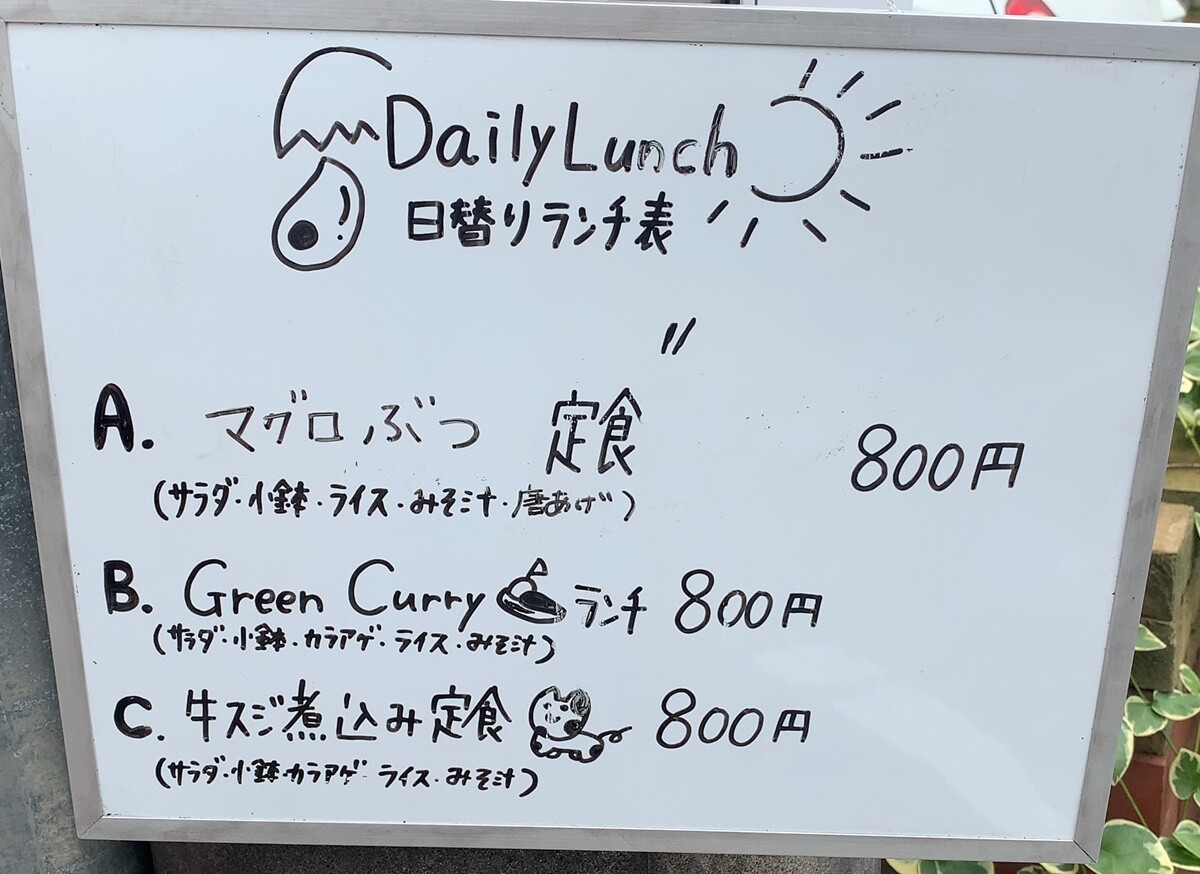 Daily Lunch
日替りランチ表
〃
A. マグロぶつ 定食 800円
(サラダ・小鉢・ライス・みそ汁・唐あげ)
B. Green Curry ランチ 800円
(サラダ・小鉢・カラアゲ・ライス・みそ汁)
C. 牛スジ煮込み定食 800円
(サラダ・小鉢・カラアゲ・ライス・みそ汁)